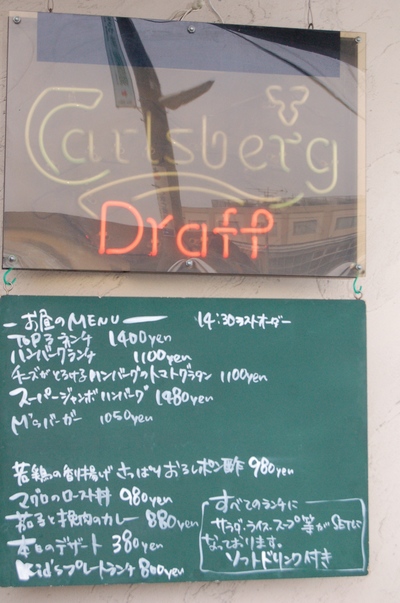 Carlsberg
Draft
お昼のMENU
14:30ラストオーダー
1400yen
ハンバーグランチ 1100yen
チーズがとろけるハンバーグのトマトグラタン 1100yen
スーパージャンボハンバーグ 1480yen
M'sバーガー 1050yen
若鶏の唐揚げ さっぱりおろしポン酢 980yen
マグロのロースト 980yen
茄子と挽肉のカレー 880yen
本日のデザート 380yen
Kid'sプレートランチ 800yen
すべてのランチに
サラダ、ライス、スープ等がSETに
なっております。
ソフトドリンク付き